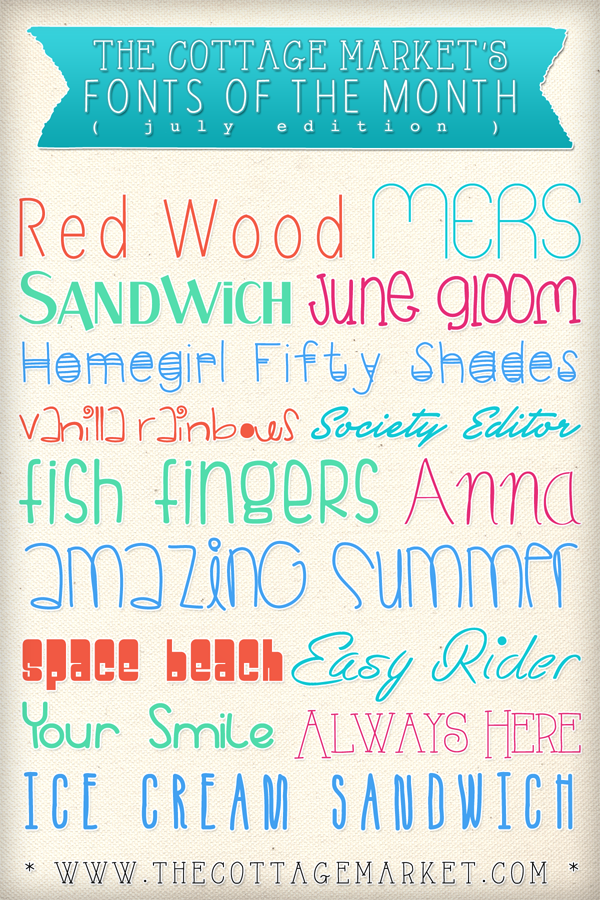 THE COTTAGE MARKET'S
FONTS OF THE MONTH
( july edition )
Red Wood MERS
SANDWiCH June gloom
Homegirl Fifty Shades
vanilla rainbows Society Editor
fish fingers Anna
amazing summer
space beach Easy Rider
Your Smile ALWAYS HERE
ICE CREAM SANDWICH
* WWW.THECOTTAGEMARKET.COM *